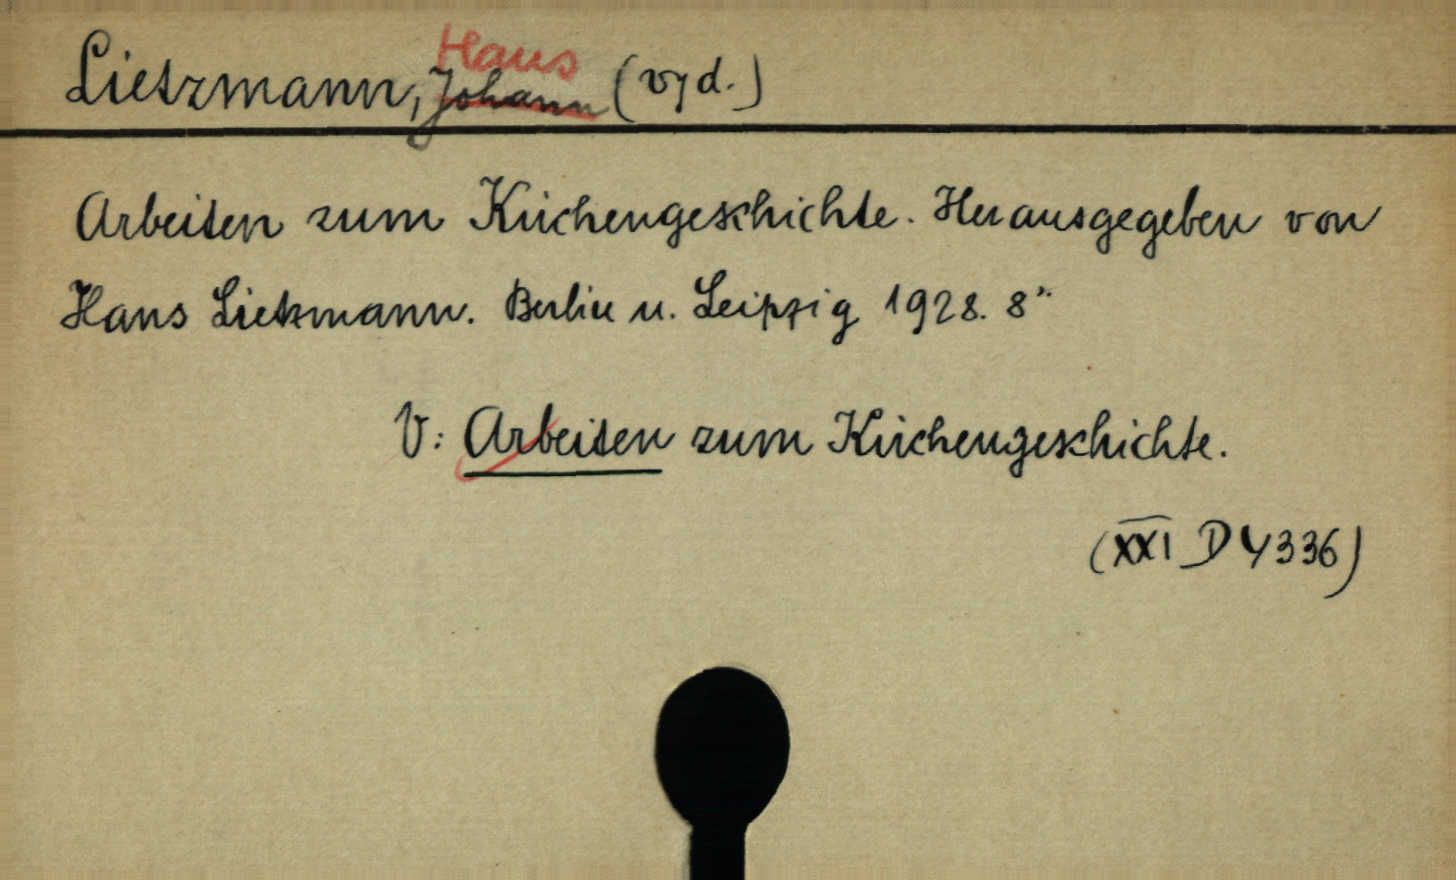 Lietzmann, Johann Hans (vyd.)
Arbeiten zum Kirchengeschichte. Herausgegeben von
Hans Lietzmann. Berlin u. Leipzig 1928. 8°.
V: Arbeiten zum Kirchengeschichte.
(XXI D 4336)